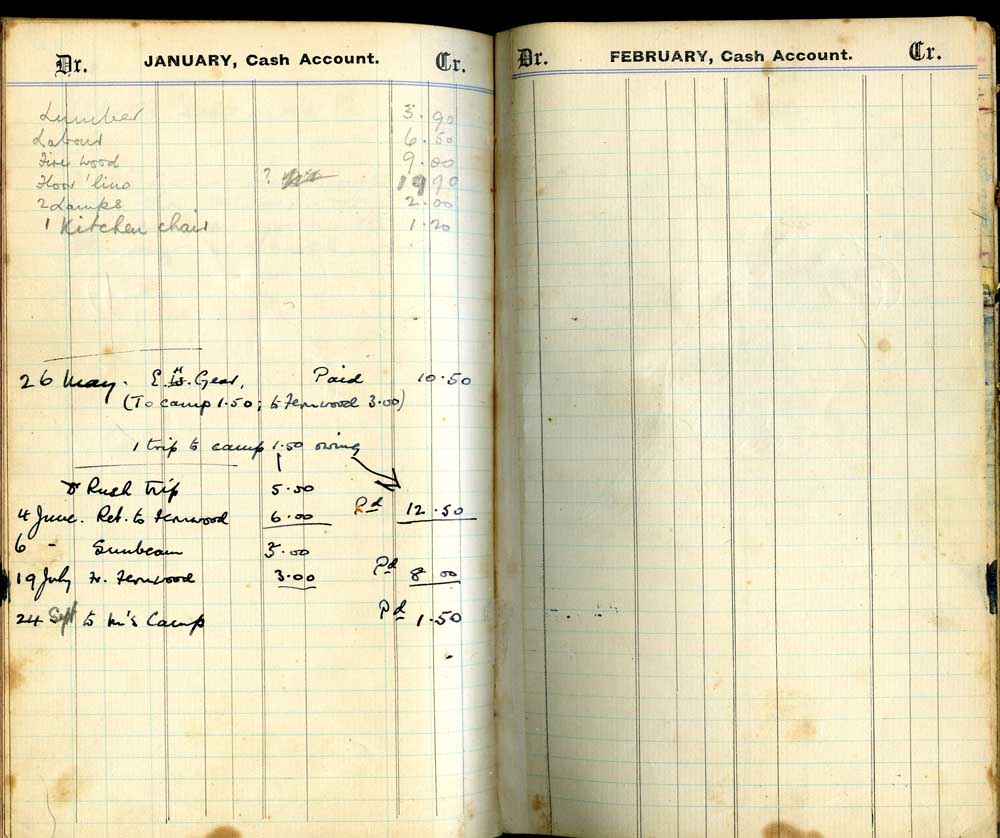 Dr. JANUARY, Cash Account. Cr.
Lumber 3.90
Labour 6.50
Fire wood 9.00
Floor lino ? 19 90
2 Lamps 2.00
1 Kitchen chair 1.20
26 May. E. H. Gear, Paid 10.50
(To camp 1.50; to Fernwood 3.00)
1 trip to camp 1.50 owing
Rush trip 5.00
4 June. Ret. to Fernwood 6.00 Pd 12.50
6 " Sunbeam 5.00
19 July Fr. Fernwood 3.00 Pd 8 00
24 Sept to M's Camp Pd 1.50
Dr. FEBRUARY, Cash Account. Cr.